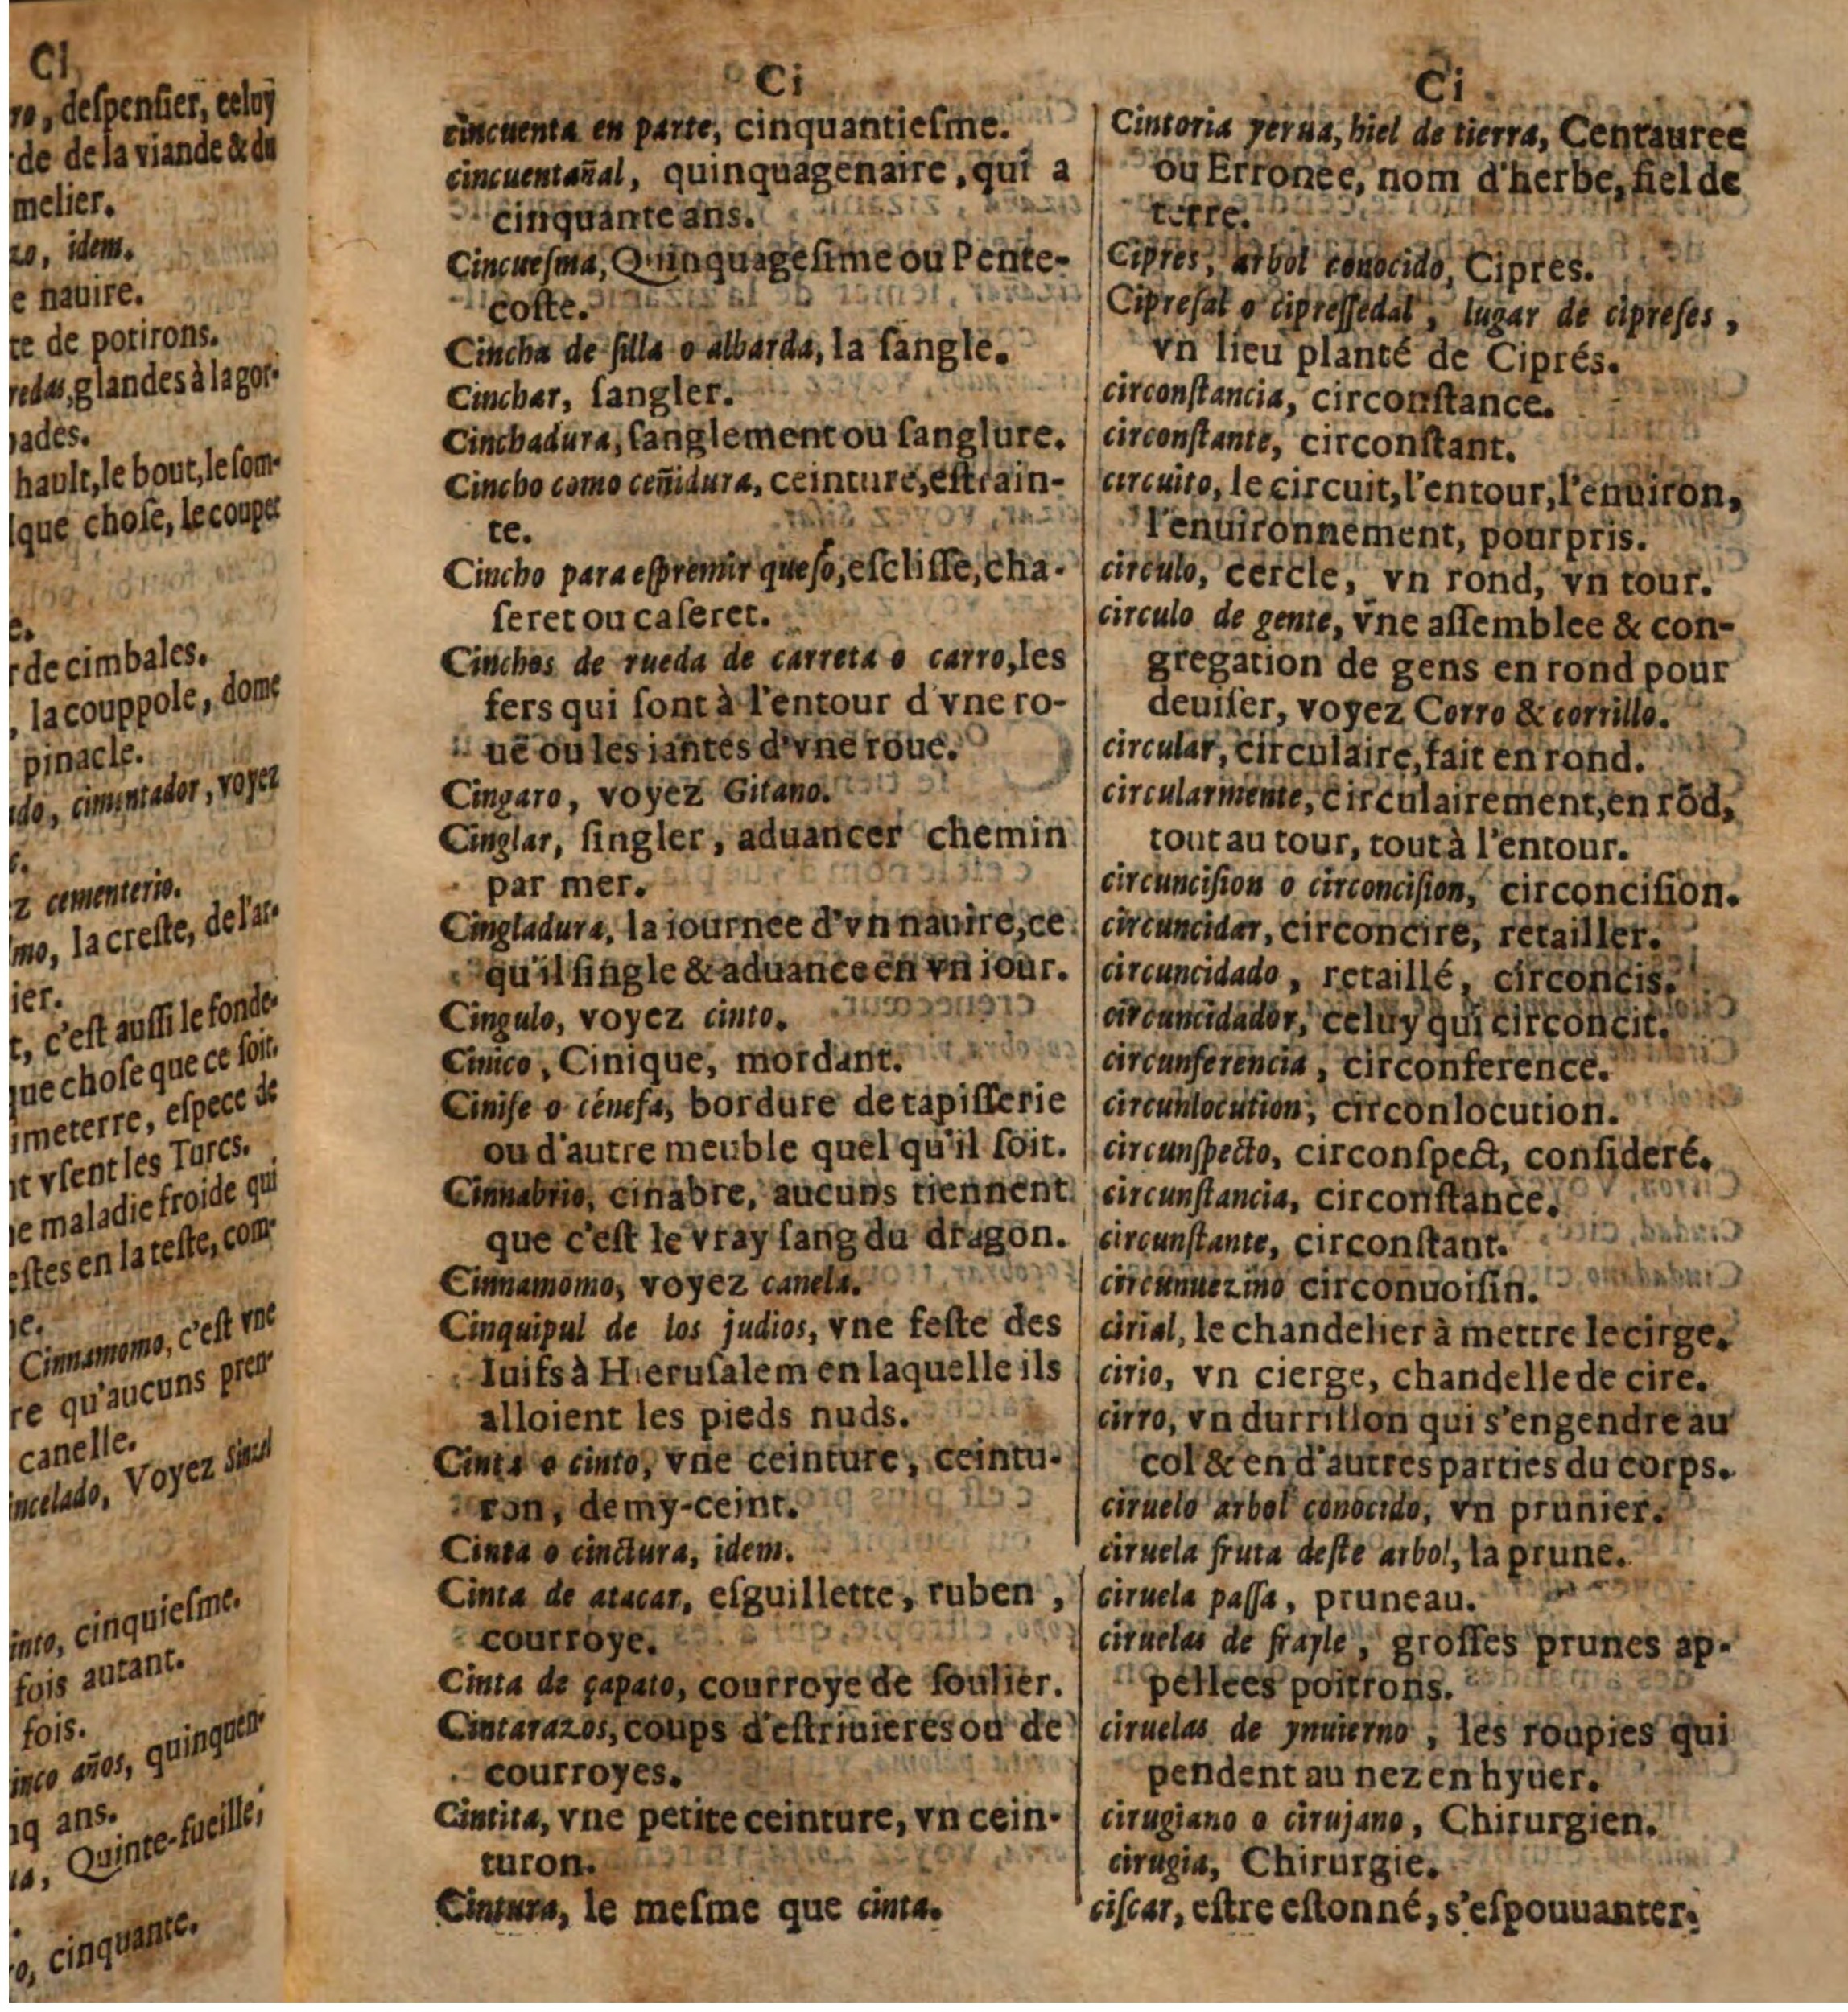 Ci
, despensier, celuy
de de la viande & du
melier.
idem.
e nauire.
te de potirons.
glandes à la gor-
ades.
hault, le bout, le som-
que chose, le coupet
r de cimbales.
, la couppole, dome
pinacle.
cimintador, voyez
z cementerio.
la creste, de l'ar-
ier.
t, c'est aussi le fonde-
que chose que ce soit.
imeterre, espece de
nt vsent les Turcs.
ne maladie froide qui
estes en la teste, com-
Cinnamomo, c'est vne
re qu'aucuns pren-
canelle.
Voyez
cinquiesme.
fois autant.
fois.
años, quinquen-
ans.
Quinte-fueille,
cinquante.
Ci
cincuenta en parte, cinquantiesme.
cincuentañal, quinquagenaire, qui a
cinquante ans.
Cincuesma, Quinquagesime ou Pente-
coste.
Cincha de silla o albarda, la sangle.
Cinchar, sangler.
Cinchadura, sanglement ou sanglure.
Cincho como ceñidura, ceinture, estrain-
te.
Cincho para espremir queso, esclisse, cha-
seret ou caseret.
Cinchos de rueda de carreta o carro, les
fers qui sont à l'entour d'vne ro-
uë ou les iantes d'vne roue.
Cingaro, voyez Gitano.
Cinglar, singler, aduancer chemin
par mer.
Cingladura, la iournee d'vn nauire, ce
qu'il single & aduance en vn iour.
Cingulo, voyez cinto.
Cinico, Cinique, mordant.
Cinise o cénefa, bordure de tapisserie
ou d'autre meuble quel qu'il soit.
Cinnabrio, cinabre, aucuns tiennent
que c'est le vray sang du dragon.
Cinnamomo, voyez canela.
Cinquipul de los judios, vne feste des
Iuifs à Hierusalem en laquelle ils
alloient les pieds nuds.
Cinta o cinto, vne ceinture, ceintu-
ron, demy-ceint.
Cinta o cinctura, idem.
Cinta de atacar, esguillette, ruben,
courroye.
Cinta de çapato, courroye de soulier.
Cintarazos, coups d'estriuieres ou de
courroyes.
Cintita, vne petite ceinture, vn cein-
turon.
Cintura, le mesme que cinta.
Ci
Cintoria yerua, hiel de tierra, Centauree
ou Erronee, nom d'herbe, fiel de
terre.
Cipres, arbol conocido, Cipres.
Cipresal o cipressedal, lugar de cipreses,
vn lieu planté de Ciprés.
circonstancia, circonstance.
circonstante, circonstant.
circuito, le circuit, l'entour, l'enuiron,
l'enuironnement, pourpris.
circulo, cercle, vn rond, vn tour.
circulo de gente, vne assemblee & con-
gregation de gens en rond pour
deuiser, voyez Corro & corrillo.
circular, circulaire, fait en rond.
circularmente, circulairement, en rõd,
tout au tour, tout à l'entour.
circuncision o circoncision, circoncision.
circuncidar, circoncire, retailler.
circuncidado, retaillé, circoncis.
circuncidador, celuy qui circoncit.
circunferencia, circonference.
circunlocution, circonlocution.
circunspecto, circonspect, consideré.
circunstancia, circonstance.
circunstante, circonstant.
circunuezino circonuoisin.
cirial, le chandelier à mettre le cirge.
cirio, vn cierge, chandelle de cire.
cirro, vn durrillon qui s'engendre au
col & en d'autres parties du corps.
ciruelo arbol conocido, vn prunier.
ciruela fruta deste arbol, la prune.
ciruela passa, pruneau.
ciruelas de frayle, grosses prunes ap-
pellees poitrons.
ciruelas de ynuierno, les roupies qui
pendent au nez en hyuer.
cirugiano o cirujano, Chirurgien.
cirugia, Chirurgie.
ciscar, estre estonné, s'espouuanter.